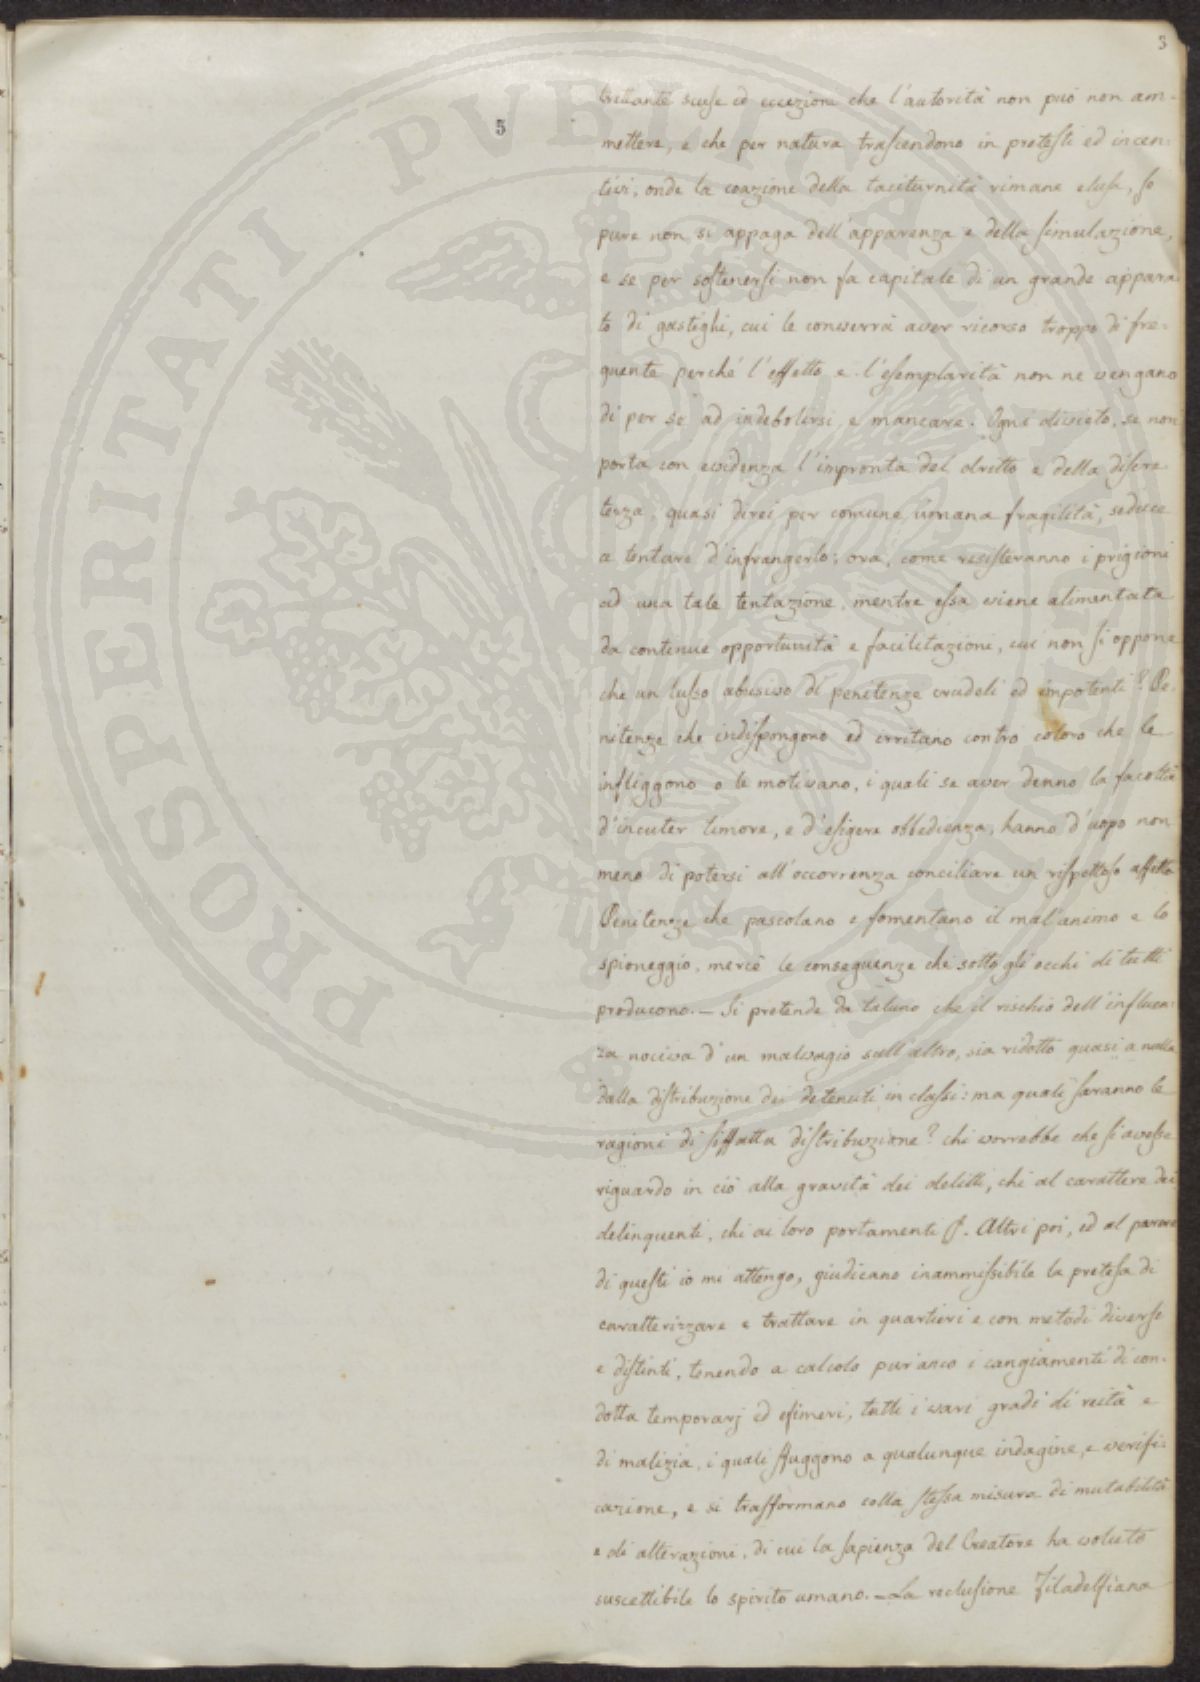 3
5
trettante scuse ed eccezioni che l'autorità non può non am-
mettere, e che per natura trascendono in pretesti ed incen-
tivi, onde la coazione della taciturnità rimane elusa, se
pure non si appaga dell'apparenza e della simulazione,
e se per sostenersi non fa capitale di un grande appara
to di gastighi, cui le converrà aver ricorso troppo di fre-
quente perché l'effetto e l'esemplarità non ne vengano
di per sé ad indebolirsi e mancare. Ogni divieto, se non
porta con evidenza l'impronta del dritto e della discre
tezza, quasi direi per comune umana fragilità, seduce
a tentare d'infrangerlo; ora, come resisteranno i prigioni
ad una tale tentazione, mentre essa viene alimentata
da continue opportunità e facilitazioni, cui non si oppone
che un lusso abusivo di penitenze crudeli ed impotenti? Pe-
nitenze che indispongono ed irritano contro coloro che le
infliggono o le motivano, i quali se aver denno la facoltà
d'incuter timore, e d'esigere obbedienza, hanno d'uopo non
meno di potersi all'occorrenza conciliare un rispettoso affetto
Penitenze che pascolano e fomentano il mal'animo e lo
spioneggio, mercè le conseguenze che sotto gli occhi di tutti
producono. — Si pretende da taluno che il rischio dell'influen-
za nociva d'un malvagio sull'altro, sia ridotto quasi a nulla
dalla distribuzione dei detenuti in classi: ma quali saranno le
ragioni di siffatta distribuzione? chi vorrebbe che si avesse
riguardo in ciò alla gravità dei delitti, chi al carattere dei
delinquenti, chi ai loro portamenti &. Altri poi, ed al parere
di questi io mi attengo, giudicano inammissibile la pretesa di
caratterizzare e trattare in quartieri e con metodi diversi
e distinti, tenendo a calcolo pur'anco i cangiamenti di con-
dotta temporarj ed efimeri, tutti i vari gradi di reità e
di malizia, i quali sfuggono a qualunque indagine, e verifi-
cazione, e si trasformano colla stessa misura di mutabilità
e di alterazioni, di cui la sapienza del Creatore ha voluto
suscettibile lo spirito umano. — La reclusione Filadelfiana
PROSPERITATI PUBLICAE